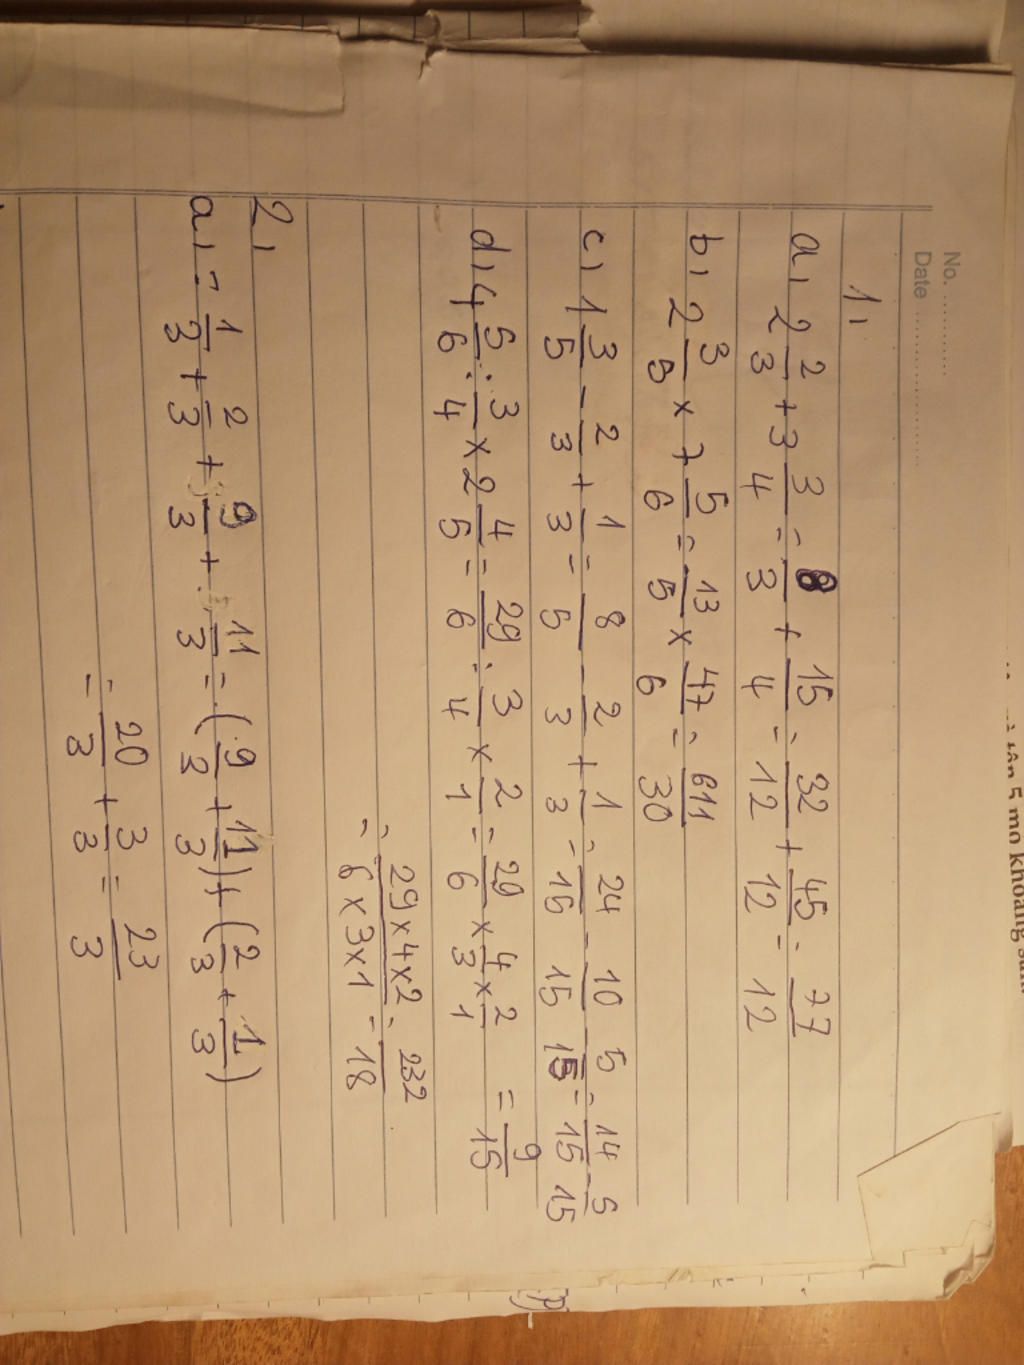 No. ............
Date ......................
1,
a, 2 2/3 + 3 3/4 = 8/3 + 15/4 = 32/12 + 45/12 = 77/12
b, 2 3/5 × 7 5/6 = 13/5 × 47/6 = 611/30
c, 1 3/5 - 2/3 + 1/3 = 8/5 - 2/3 + 1/3 = 24/15 - 10/15 5/15 = 14/15 - 5/15
= 9/15
d, 4 5/6 : 3/4 × 2 4/5 = 29/6 : 3/4 × 2/1 = 29/6 × 4/3 × 2/1
= 29×4×2/6×3×1 = 232/18
2,
a, = 1/3 + 2/3 + 9/3 + 11/3 = (9/3 + 11/3) + (2/3 + 1/3)
= 20/3 + 3/3 = 23/3
tên 5 mo khoáng sản